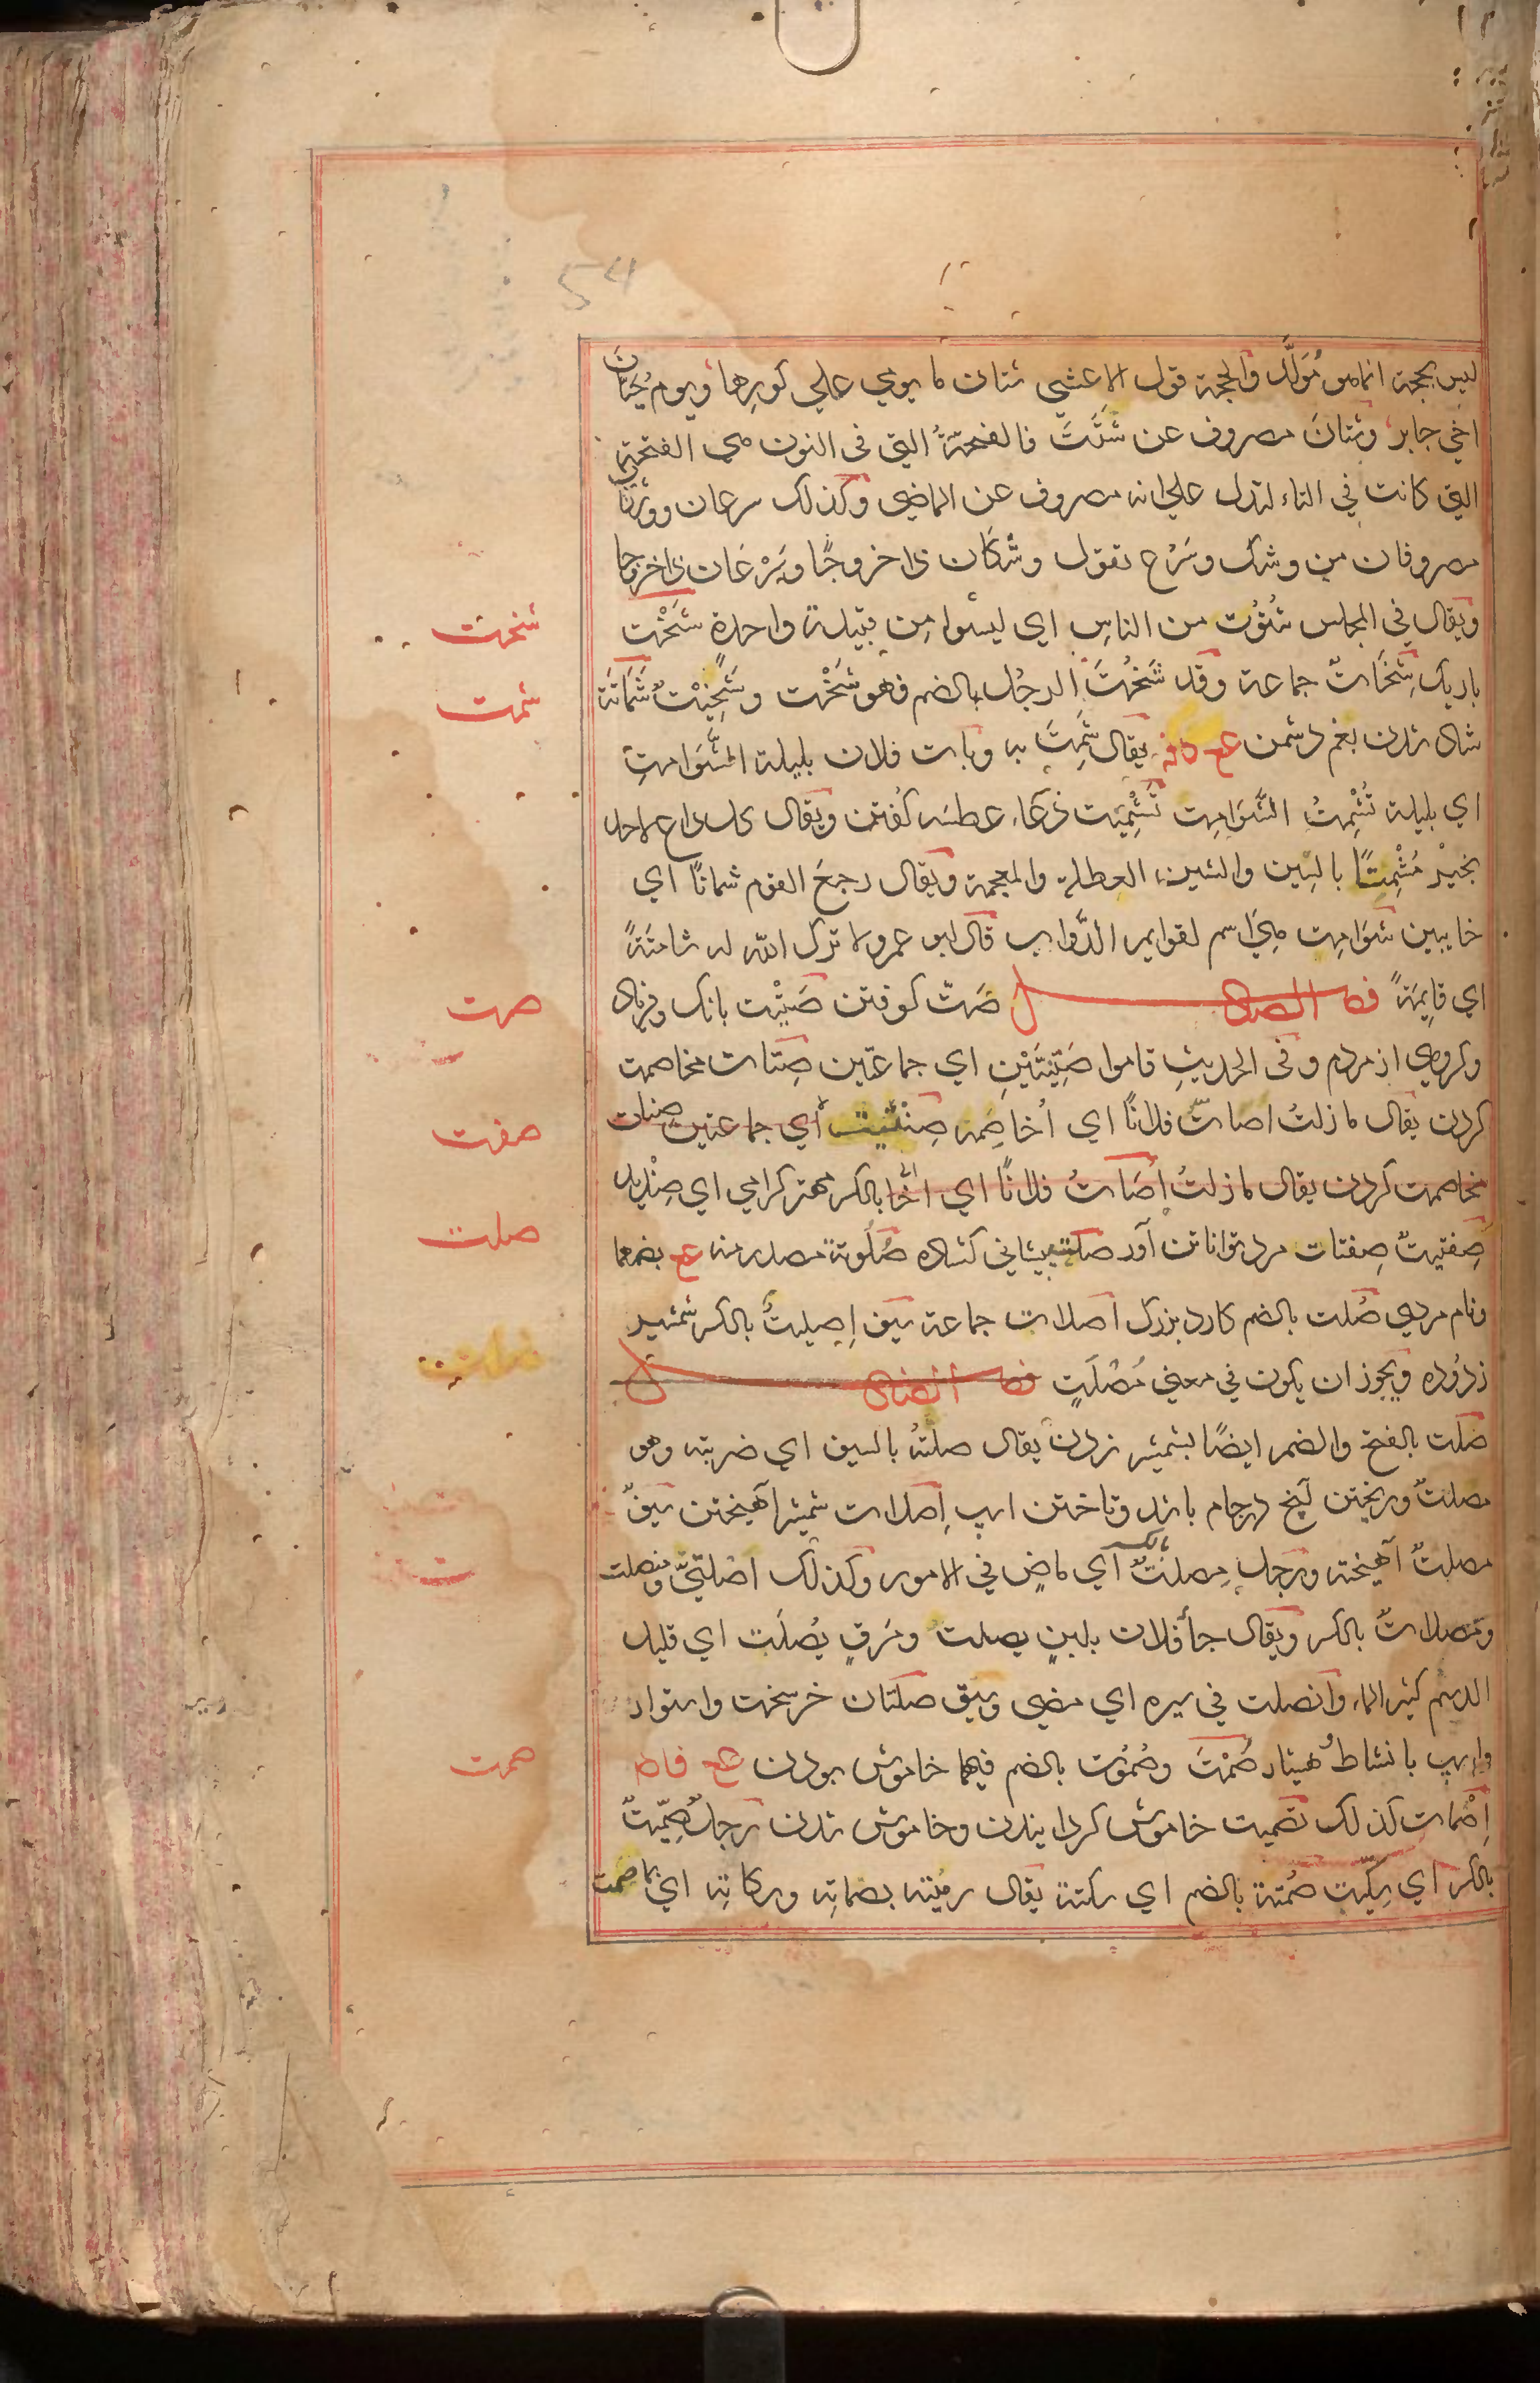 54
ليس بحجة انما هو مُوَلَّد والحجة قول الاعشي شتان ما يومي علي كورها ويوم حَيّانَ
اخي جابر وشتانَ مصروف عن شَتُتَ فالفتحةُ التي في النون هي الفتحة
التي كانت في التاء لتدل علي انه مصروف عن الماضي وكذلك سرعان ووشكان
مصروفان من وشك وسَرُع تقول وشكَان ذا خروجًا وسَرْعَان ذا خروجا
ويقال في المجلس شُتُوت من الناسِ اي ليسوا مِن قبيلة واحدة شَخْت
باريک شِخَاتٌ جماعة وقد شَخُتَ الرجُل بالضم فهو شَخْت وشَخِيْتٌ شَمَاتَة
شاد شدن بغم دشمن يقال شَمِتَ به وبات فلان بليلة الشَّوَامِتِ
اي بليلة تُشْمِتُ الشَّوَامِت تَشْمِيْت دُعَاء عطسه كُفتن ويقال كل داع لاحد
بخَيْرٍ مُشْمِتًا بالسِين والشين المعطلة والمعجمة ويقال رجعَ القوم شماتًا اي
خايبين شَوَامِت هِيَ اسم لقوايم الدَّواب قال ابو عمرو لا ترك الله له شامتَةً
اي قايِمَةً فصل الصاد صَتّ كوفتن صَتِيْت بانك وفرياد
وكروهي از مردم وفي الحديثِ قاموا صَتِيتَيْنِ اي جماعتين صِتَات مخاصمت
كردن يقال ما زلتُ اصاتّ فلانًا اي اُخاصِمه صِنْتِيت اي جماعتين صتات
مخاصمت كردن يقال ما زلتُ اُصَاتُ فلانًا اي بالكسر مهتر كرامي اي صِنْدِيد
صِفْتِيتٌ صِفتات مرد تواناتن آور صلت پيشاني كشاده صُلُوتة مصدر منه عح بضمها
ونام مردي صُلت بالضم كارد بزرك اصلات جماعة سيف اِصِليتٌ بالكسر شمشير
زدُوده ويجوز ان يكون في معني مُصْلَتٍ فصل الضاد
صَلت بالفتح والضم ايضًا بشمشير زدن يقال صلتُهُ بالسيف اي ضربته وهو
مصلتٌ وريختن آنچ در جام باشد وتاختن اسپ اِصلات شمشير آهيختن سيفٌ
مصلتٌ آهيخته ورجل مِصلتٌ بالكسر اي ماضٍ في الامور وكذلك اصْلَتِيّ ومنصلت
ومصلاتٌ بالكسر ويقال جأ فلان بلبنٍ يصلتُ ومَرَقٍ يُصلَت اي قليل
الدسم كثير الماء وانصلت في سيره اي مضي وسبق صلتان خر سخت واستوار
واسپ بانشاطُ هشيار صَمْتَ وصُمُوت بالضم فيهما خاموش بودن عح
اِصْمات كذلك تصميت خاموش كردانيدن وخاموش شدن رجلٌ صِمِّيتٌ
بالكسر اي سِكِّيت صُمْتة بالضم اي سكتة يقال رميْته بصماتِه وسكاتِه اي بما صمت
شخت
شمت
صت
صفت
صلت
صمت